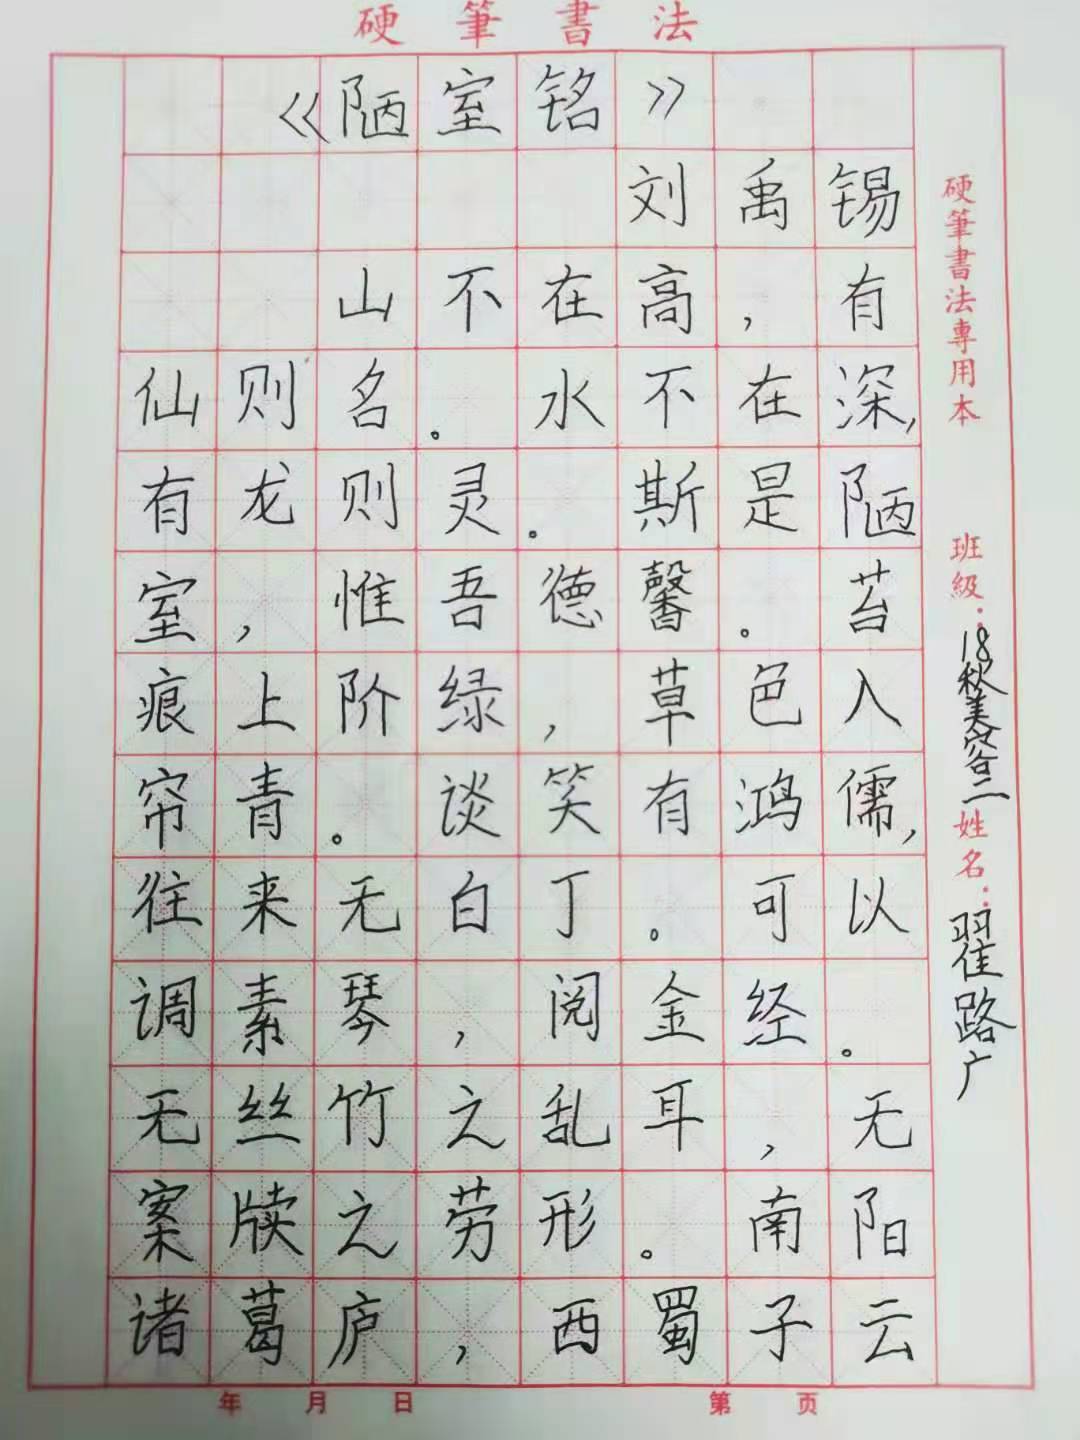 硬筆書法
《陋室铭》
刘禹锡
山不在高，有
仙则名。水不在深，
有龙则灵。斯是陋
室，惟吾德馨。苔
痕上阶绿，草色入
帘青。谈笑有鸿儒，
往来无白丁。可以
调素琴，阅金经。
无丝竹之乱耳，无
案牍之劳形。南阳
诸葛庐，西蜀子云
年 月 日 第 页
硬筆書法專用本
班級：18秋美容二
姓名：翟路广